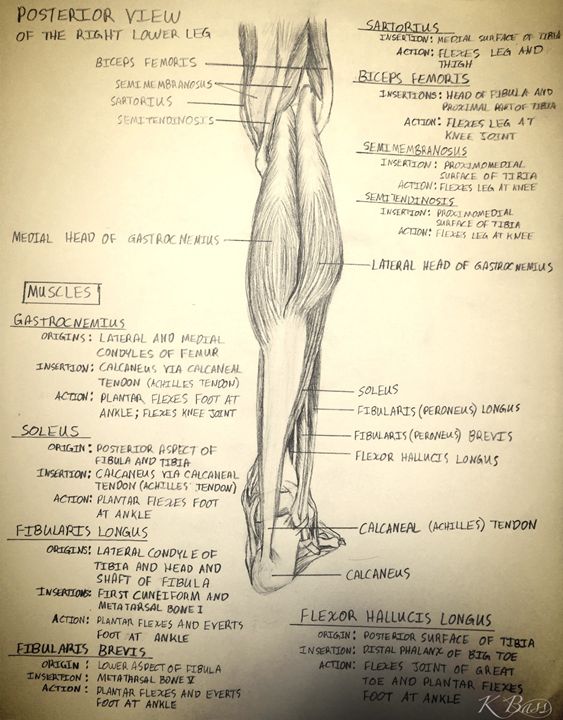 POSTERIOR VIEW
OF THE RIGHT LOWER LEG
BICEPS FEMORIS
SEMIMEMBRANOSUS
SARTORIUS
SEMITENDINOSIS
MEDIAL HEAD OF GASTROCNEMIUS
MUSCLES
GASTROCNEMIUS
ORIGINS: LATERAL AND MEDIAL
CONDYLES OF FEMUR
INSERTION: CALCANEUS VIA CALCANEAL
TENDON (ACHILLES TENDON)
ACTION: PLANTAR FLEXES FOOT AT
ANKLE; FLEXES KNEE JOINT
SOLEUS
ORIGIN: POSTERIOR ASPECT OF
FIBULA AND TIBIA
INSERTION: CALCANEUS VIA CALCANEAL
TENDON (ACHILLES TENDON)
ACTION: PLANTAR FLEXES FOOT
AT ANKLE
FIBULARIS LONGUS
ORIGINS: LATERAL CONDYLE OF
TIBIA AND HEAD AND
SHAFT OF FIBULA
INSERTIONS: FIRST CUNEIFORM AND
METATARSAL BONE I
ACTION: PLANTAR FLEXES AND EVERTS
FOOT AT ANKLE
FIBULARIS BREVIS
ORIGIN: LOWER ASPECT OF FIBULA
INSERTION: METATARSAL BONE V
ACTION: PLANTAR FLEXES AND EVERTS
FOOT AT ANKLE
SARTORIUS
INSERTION: MEDIAL SURFACE OF TIBIA
ACTION: FLEXES LEG AND
THIGH
BICEPS FEMORIS
INSERTIONS: HEAD OF FIBULA AND
PROXIMAL PART OF TIBIA
ACTION: FLEXES LEG AT
KNEE JOINT
SEMIMEMBRANOSUS
INSERTION: PROXIMOMEDIAL
SURFACE OF TIBIA
ACTION: FLEXES LEG AT KNEE
SEMITENDINOSIS
INSERTION: PROXIMOMEDIAL
SURFACE OF TIBIA
ACTION: FLEXES LEG AT KNEE
LATERAL HEAD OF GASTROCNEMIUS
SOLEUS
FIBULARIS (PERONEUS) LONGUS
FIBULARIS (PERONEUS) BREVIS
FLEXOR HALLUCIS LONGUS
CALCANEAL (ACHILLES) TENDON
CALCANEUS
FLEXOR HALLUCIS LONGUS
ORIGIN: POSTERIOR SURFACE OF TIBIA
INSERTION: DISTAL PHALANX OF BIG TOE
ACTION: FLEXES JOINT OF GREAT
TOE AND PLANTAR FLEXES
FOOT AT ANKLE
K Bass